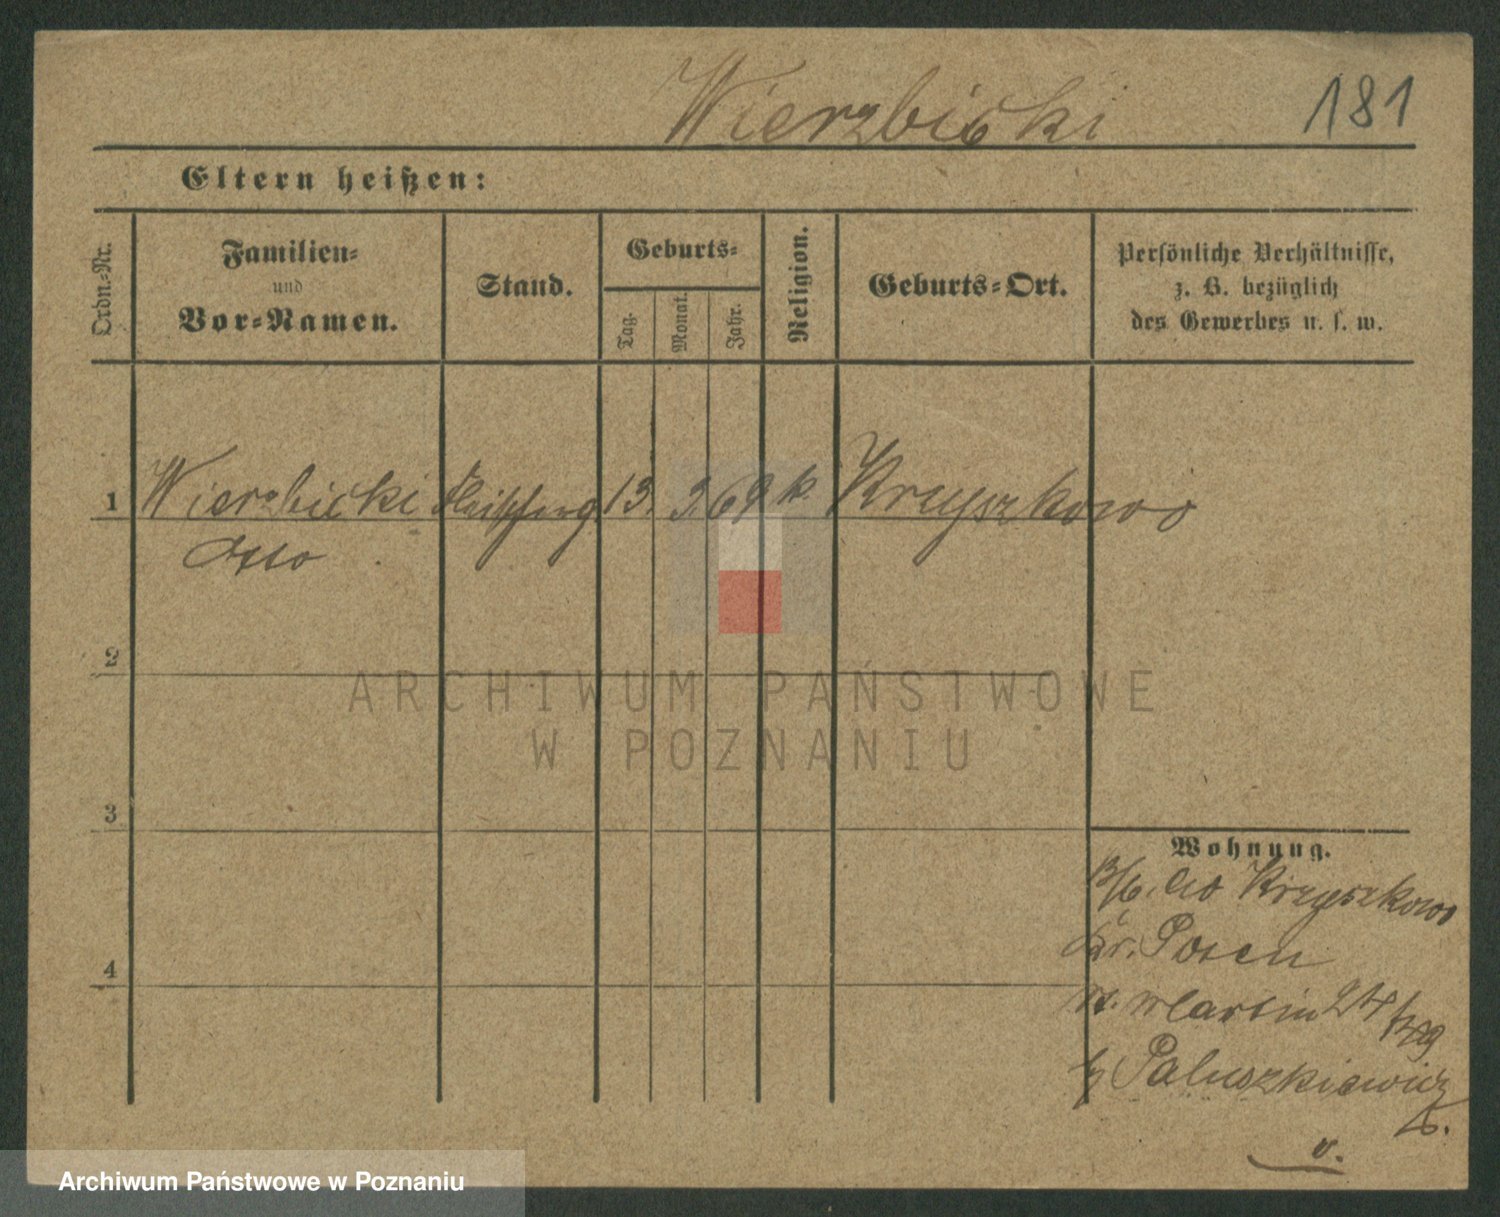 Wierzbicki
181
Eltern heißen:
Ordn.-Nr.
Familien-
und
Vor-Namen.
Stand.
Geburts-
Tag.
Monat.
Jahr.
Religion.
Geburts-Ort.
Persönliche Verhältnisse,
z. B. bezüglich
des Gewerbes u. s. w.
1 Wierzbicki 13. 3. 69 k. Krzyszkowo
Otto
2
3
4
ARCHIWUM PAŃSTWOWE
W POZNANIU
Wohnung.
Krzyszkowo
Kr. Posen
St. Martin 24
Paluszkiewicz
v.
Archiwum Państwowe w Poznaniu